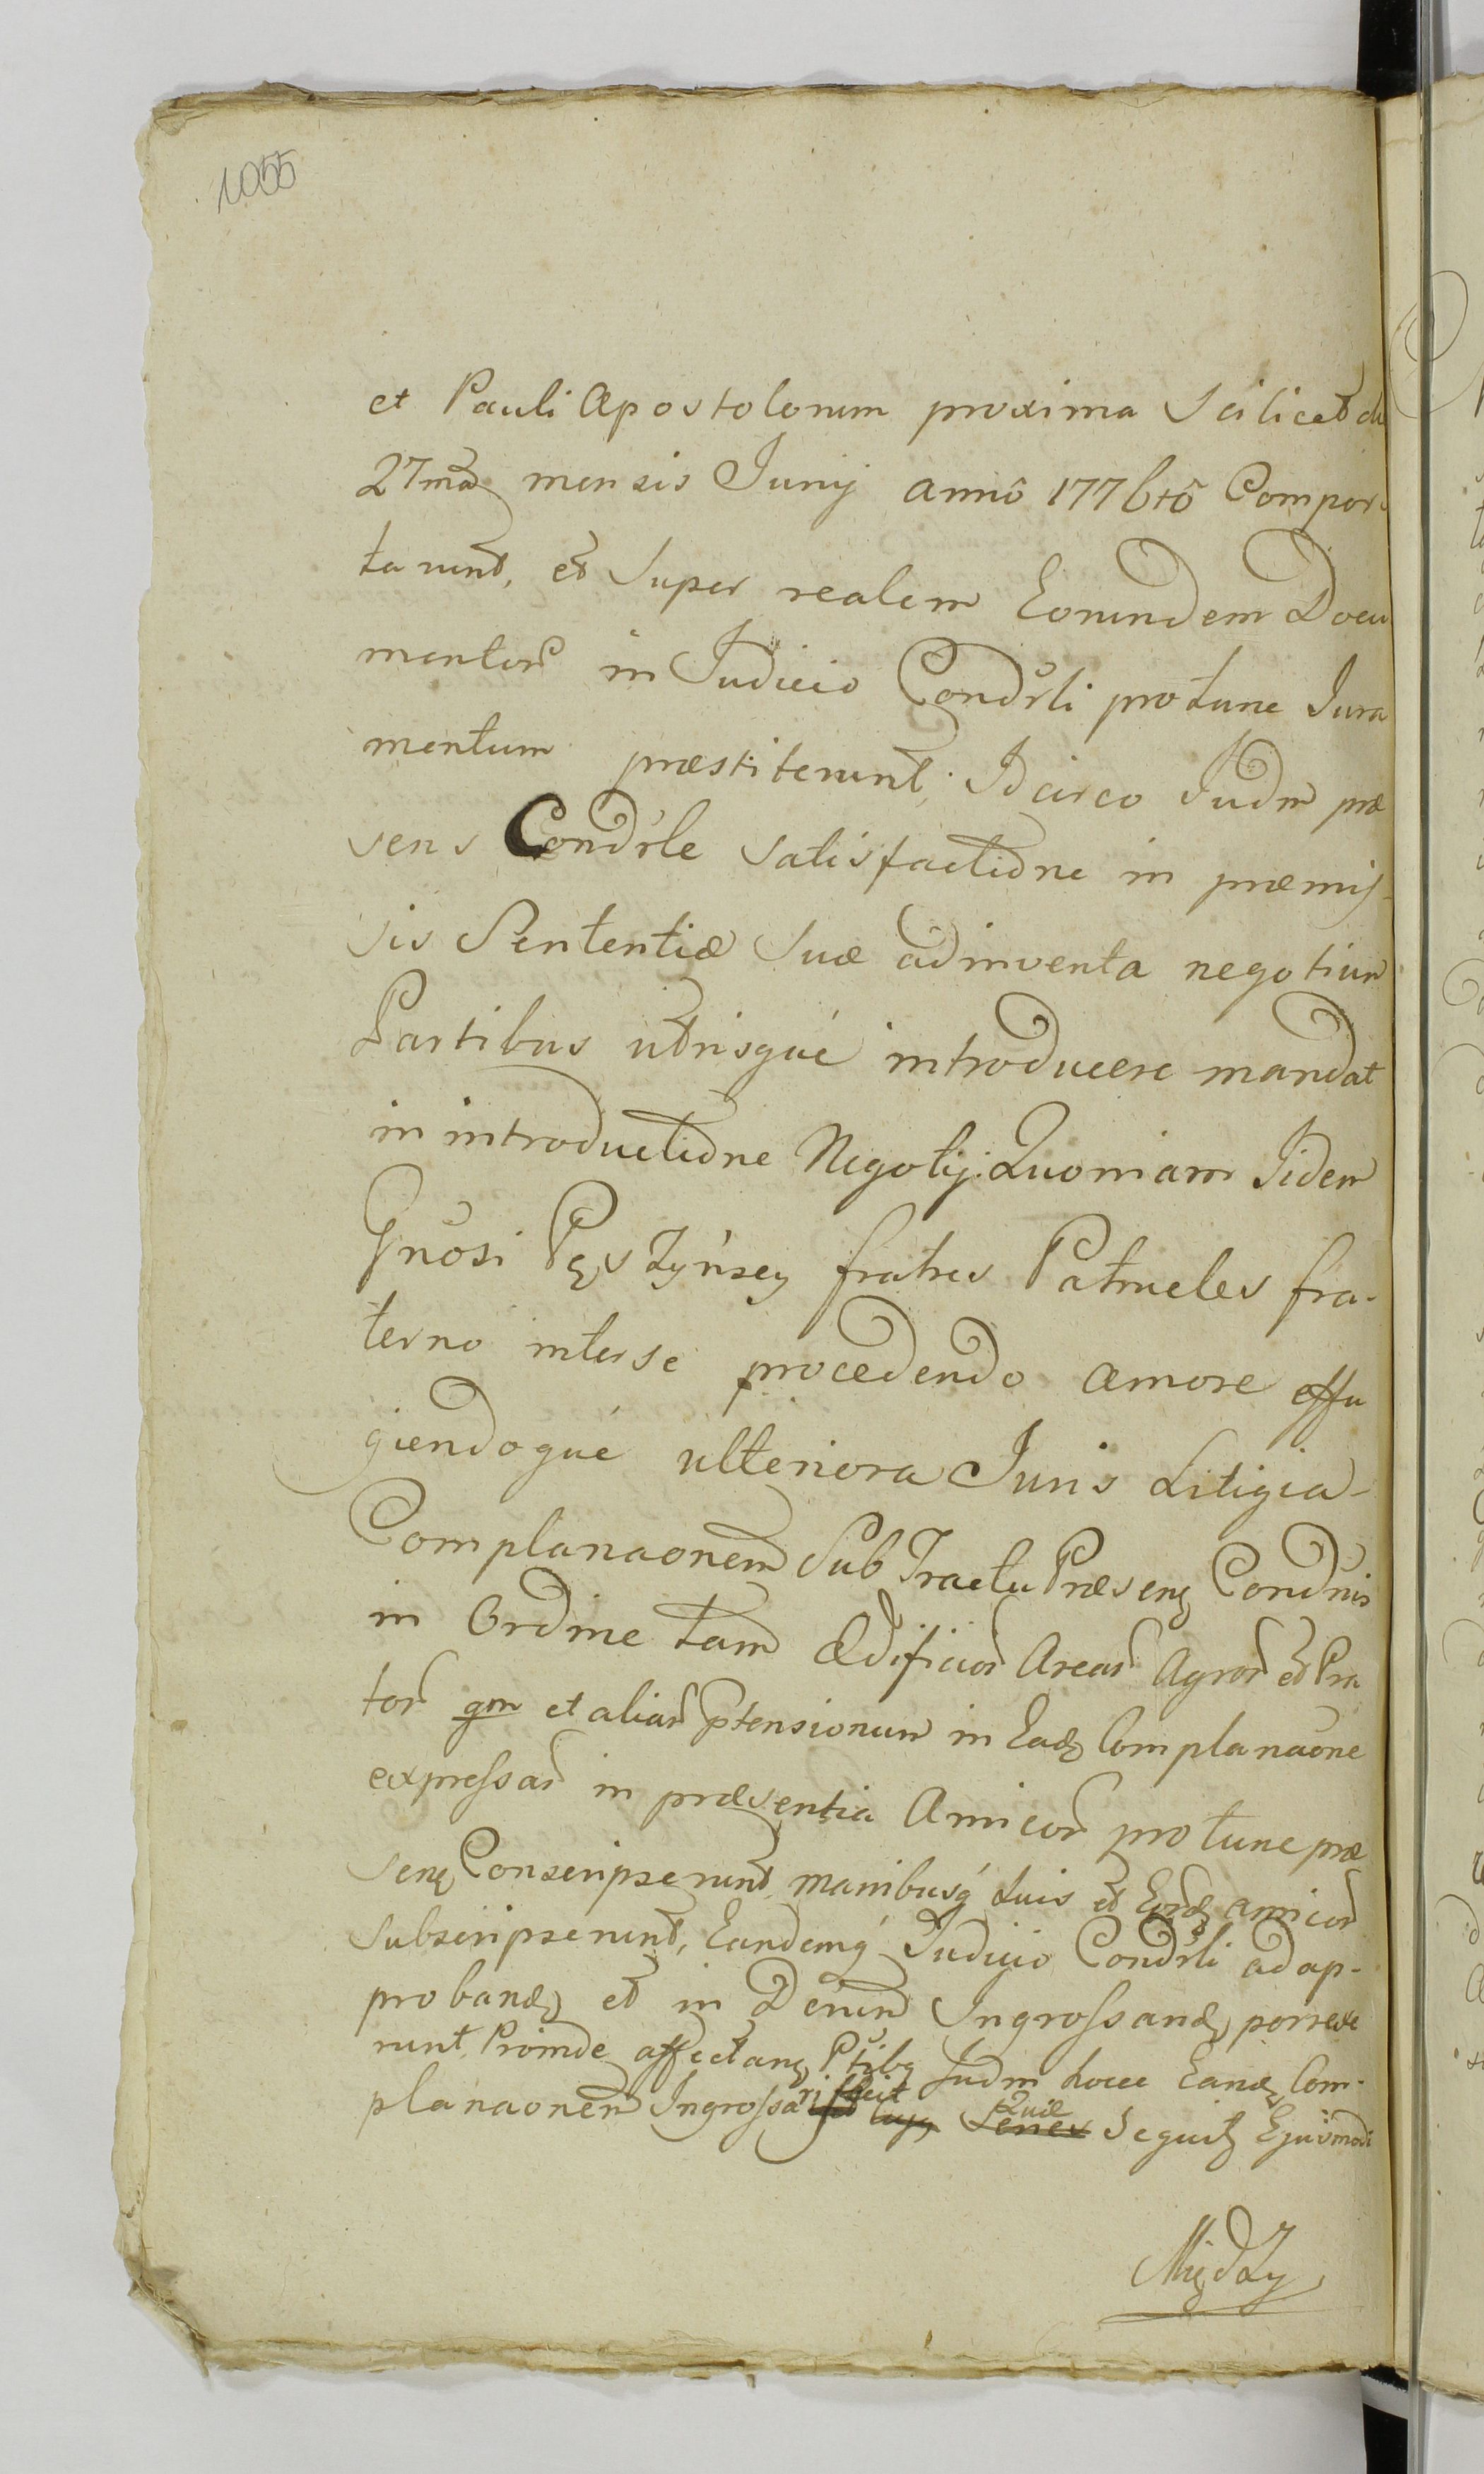 1055
et Pauli Apostolorum proxima Scilicet di
27mâ mensis Junij annô 1776tô Compor-
tarunt, et Super realem Eorundem Docu
mentor̃ in Judicio Condrli protunc Jura
mentum præstiterunt, Idcirco Judm præ
sens Condrle satisfactione in præmis-
sis Sententiæ Suæ adinventa negotium
Partibus utrisqué introducere mandat
in introductione Negotij. Quoniam Iidem
Gnosi Pęstyńscy fratres Patrueles fra-
terno interse procedendo amore effu
giendoqué ulteriora Juris Litigia
Complanaonem Sub Tractu Præsenę Condnis
in Ordine tam Ædificior̃ Arear̃ Agror̃ et Pra
tor̃ qm et aliar̃ ptensionum in Eadę Complanaone
expressar̃ in præsentia Amicor̃ protunc præ
senę Conscripserunt, manibusq́ suis et Eordę amicor̃
subscripserunt, Eandemq́ Judicio Condrli ad ap-
probandę et in Decrum Ingrossandę porrexe
runt. Proinde affectanę Ptibq Judm hocce Eandę Com-
planaonem Ingrossari fecit Cujq Tenex Quæ Sequitę Ejusmodi
Między